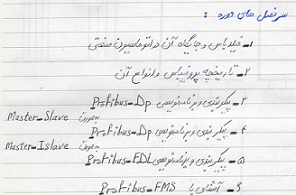 سرفصل های دوره :
1- فیلدباس و جایگاه آن در اتوماسیون صنعتی
2- تاریخچه پروفیباس و انواع آن
3- پیکربندی و برنامه‌نویسی Profibus-Dp بصورت Master-Slave
4- پیکربندی و برنامه‌نویسی Profibus-Dp بصورت Master-Islave
5- پیکربندی و برنامه‌نویسی Profibus-FDL
6- آشنایی با Profibus-FMS